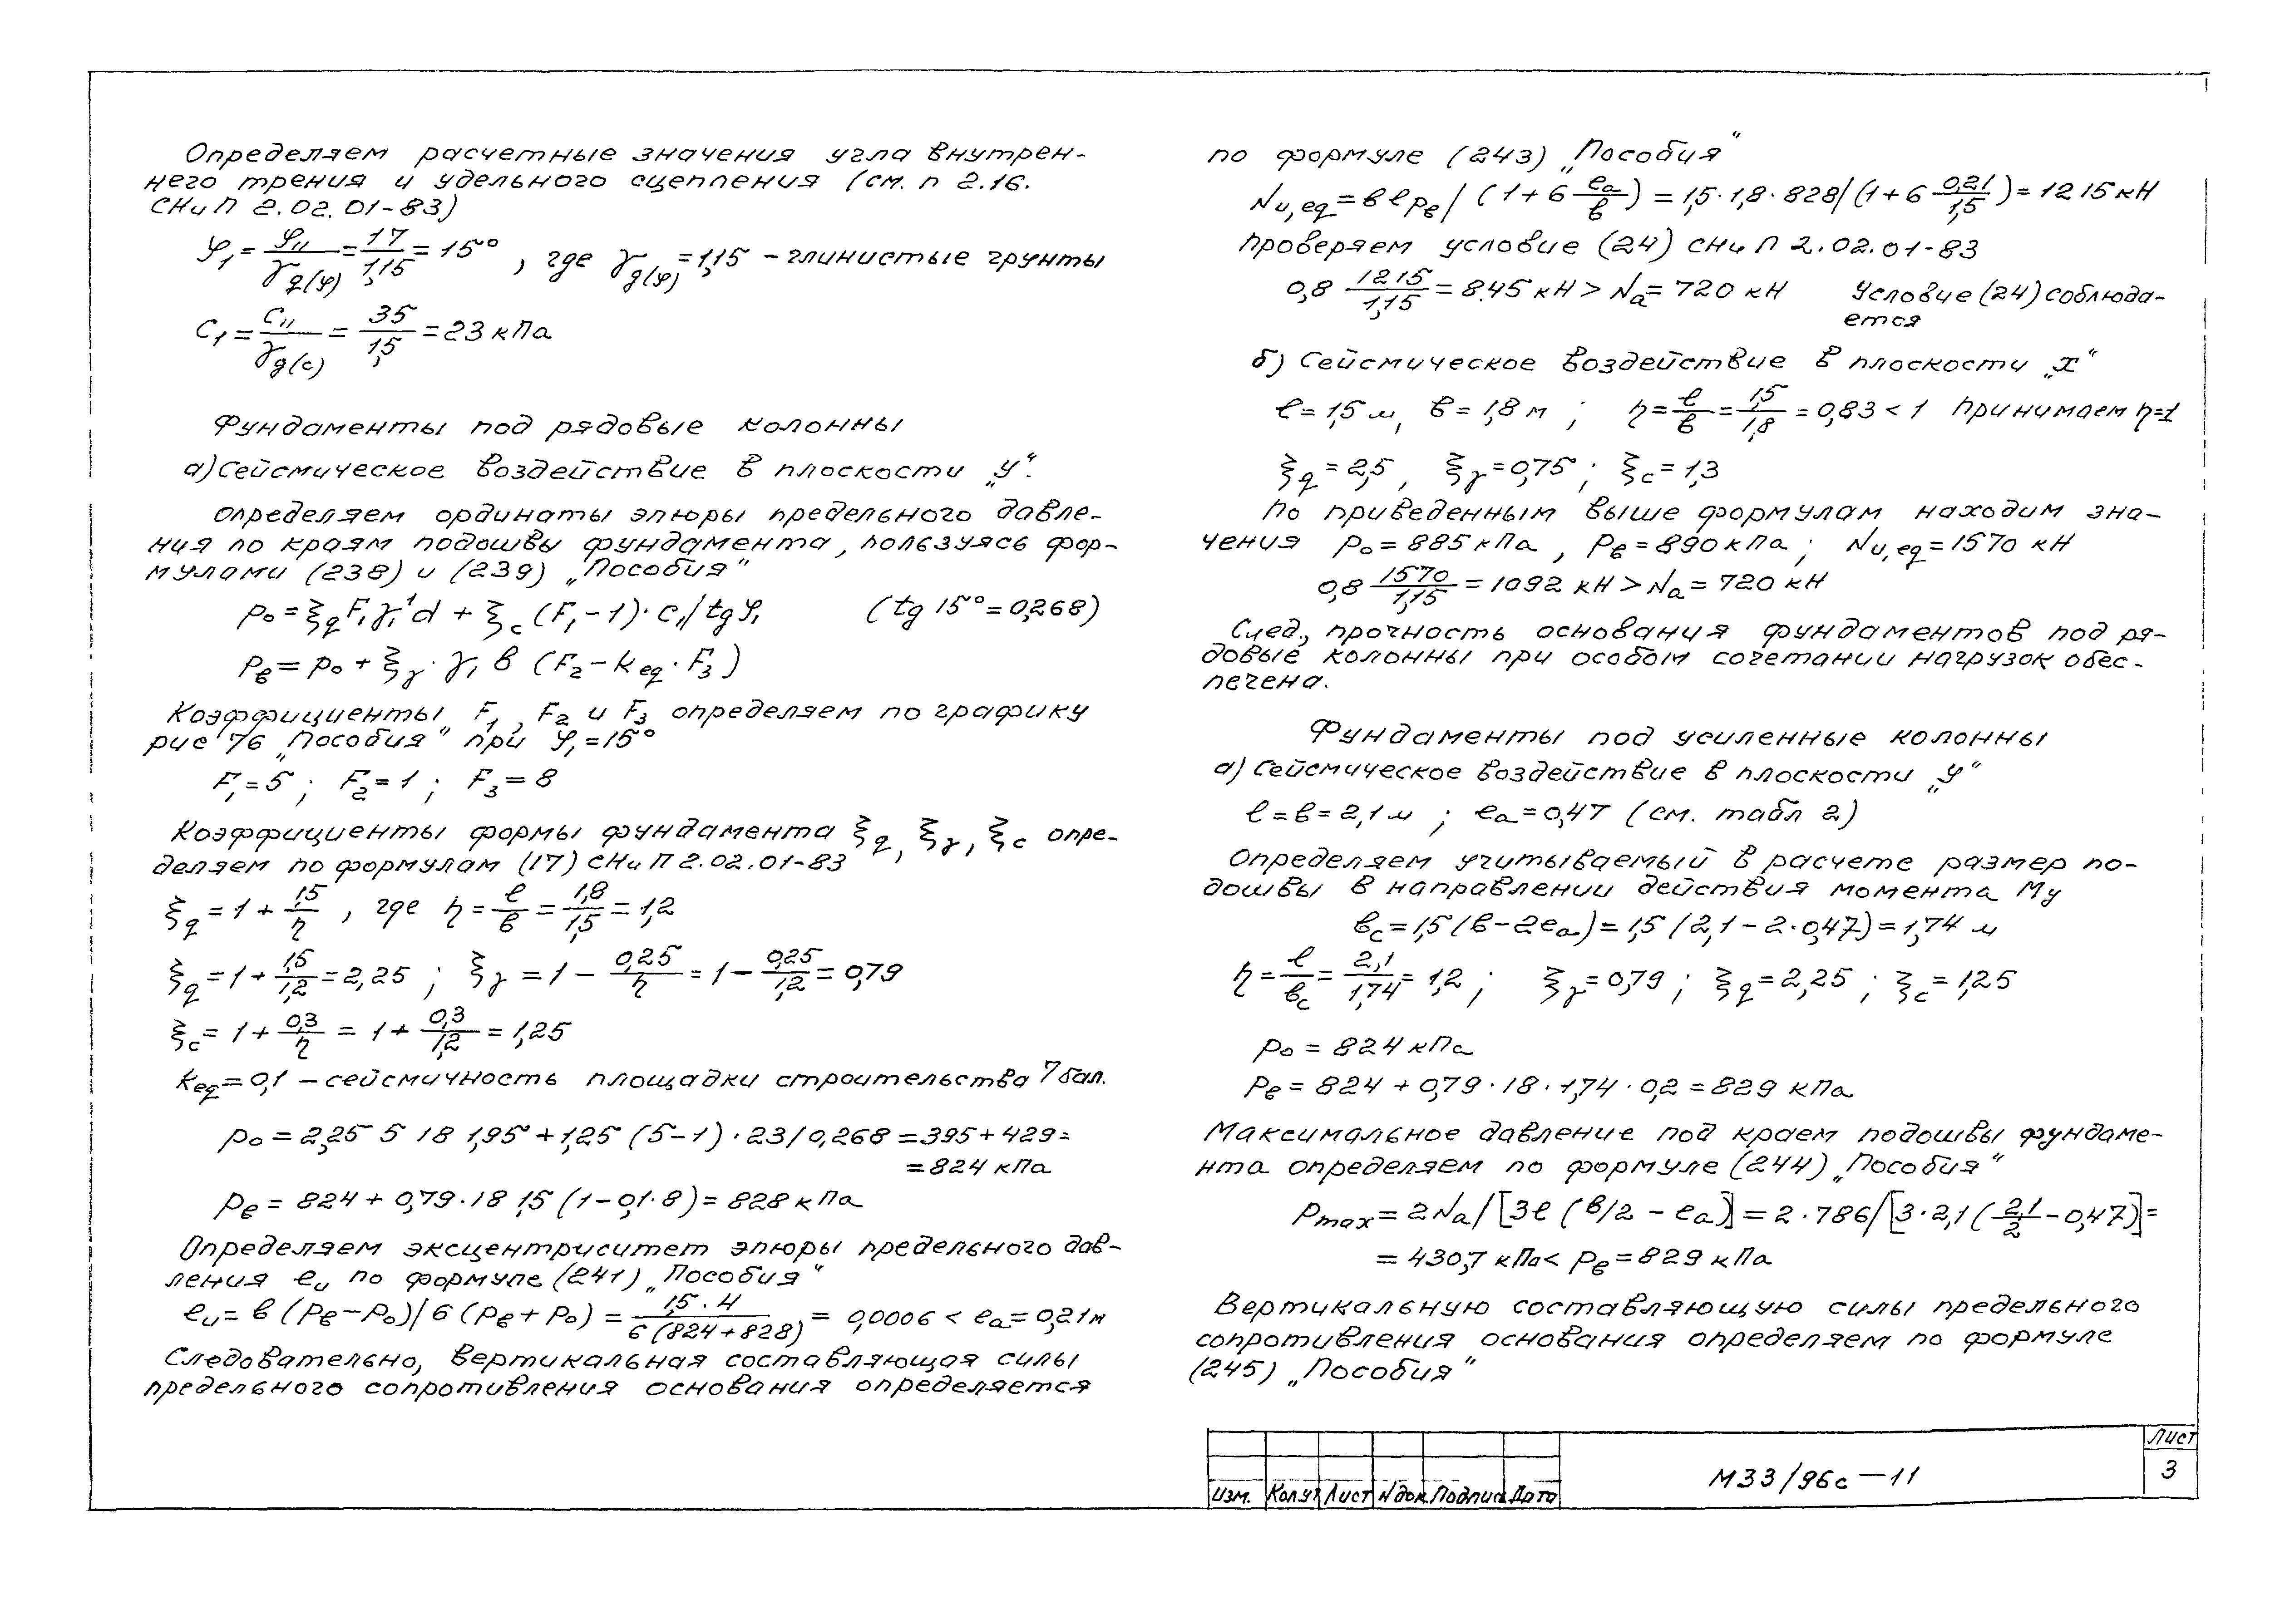 Определяем расчетные значения угла внутрен-
него трения и удельного сцепления (см. п 2.16.
СНиП 2.02.01-83)
φ₁ = φ_II / γ_g(φ) = 17/1,15 = 15° , где γ_g(φ) = 1,15 – глинистые грунты
c₁ = c_II / γ_g(c) = 35/1,5 = 23 кПа
Фундаменты под рядовые колонны
а) Сейсмическое воздействие в плоскости „У".
Определяем ординаты эпюры предельного давле-
ния по краям подошвы фундамента, пользуясь фор-
мулами (238) и (239) „Пособия"
p₀ = ξ_q F₁ γ₁' d + ξ_c (F₁ – 1) · c₁/tg φ₁ (tg 15° = 0,268)
p_в = p₀ + ξ_γ · γ₁ в (F₂ – k_eq · F₃)
Коэффициенты F₁, F₂ и F₃ определяем по графику
рис 76 „Пособия" при φ₁ = 15°
F₁ = 5 ; F₂ = 1 ; F₃ = 8
Коэффициенты формы фундамента ξ_q, ξ_γ, ξ_c опре-
деляем по формулам (17) СНиП 2.02.01-83
ξ_q = 1 + 1,5/η , где η = ℓ/в = 1,8/1,5 = 1,2
ξ_q = 1 + 1,5/1,2 = 2,25 ; ξ_γ = 1 – 0,25/η = 1 – 0,25/1,2 = 0,79
ξ_c = 1 + 0,3/η = 1 + 0,3/1,2 = 1,25
k_eq = 0,1 – сейсмичность площадки строительства 7 бал.
p₀ = 2,25 5 18 1,95 + 1,25 (5–1) · 23/0,268 = 395 + 429 =
= 824 кПа
p_в = 824 + 0,79 · 18 1,5 (1 – 0,1 · 8) = 828 кПа
Определяем эксцентриситет эпюры предельного дав-
ления e_u по формуле (241) „Пособия"
e_u = в (p_в – p₀)/6 (p_в + p₀) = 1,5 · 4 / 6 (824 + 828) = 0,0006 < e_a = 0,21 м
Следовательно, вертикальная составляющая силы
предельного сопротивления основания определяется
по формуле (243) „Пособия"
N_u,eq = в ℓ p_в / (1 + 6 e_a/в) = 1,5 · 1,8 · 828/(1 + 6 0,21/1,5) = 1215 кН
проверяем условие (24) СНиП 2.02.01-83
0,8 1215/1,15 = 845 кН > N_a = 720 кН Условие (24) соблюда-
ется
б) Сейсмическое воздействие в плоскости „Х"
ℓ = 1,5 м, в = 1,8 м ; η = ℓ/в = 1,5/1,8 = 0,83 < 1 принимаем η=1
ξ_q = 2,5 , ξ_γ = 0,75 ; ξ_c = 1,3
По приведенным выше формулам находим зна-
чения p₀ = 885 кПа , p_в = 890 кПа ; N_u,eq = 1570 кН
0,8 1570/1,15 = 1092 кН > N_a = 720 кН
След., прочность основания фундаментов под ря-
довые колонны при особом сочетании нагрузок обес-
печена.
Фундаменты под усиленные колонны
а) Сейсмическое воздействие в плоскости „У"
ℓ = в = 2,1 м ; e_a = 0,47 (см. табл 2)
Определяем учитываемый в расчете размер по-
дошвы в направлении действия момента Му
в_c = 1,5 (в – 2e_a) = 1,5 (2,1 – 2 · 0,47) = 1,74 м
η = ℓ/в_c = 2,1/1,74 = 1,2 ; ξ_γ = 0,79 ; ξ_q = 2,25 ; ξ_c = 1,25
p₀ = 824 кПа
p_в = 824 + 0,79 · 18 · 1,74 · 0,2 = 829 кПа
Максимальное давление под краем подошвы фундаме-
нта определяем по формуле (244) „Пособия"
p_max = 2N_a/[3ℓ (в/2 – e_a)] = 2 · 786/[3 · 2,1 (2,1/2 – 0,47)] =
= 430,7 кПа < p_в = 829 кПа
Вертикальную составляющую силы предельного
сопротивления основания определяем по формуле
(245) „Пособия"
Изм. Кол.уч Лист N док. Подпись Дата
М33/96с – 11
Лист
3